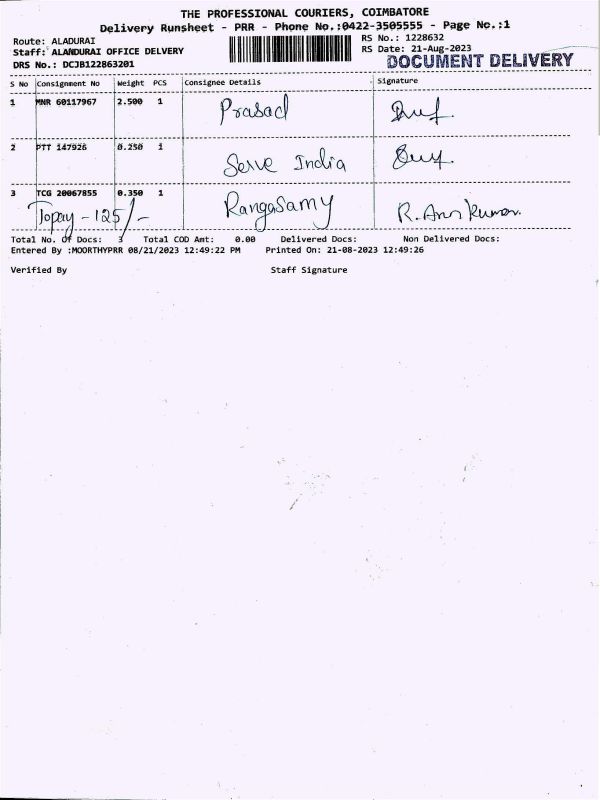 THE PROFESSIONAL COURIERS, COIMBATORE
Delivery Runsheet - PRR - Phone No.:0422-3505555 - Page No.:1
Route: ALADURAI
RS No.: 1228632
Staff: ALANDURAI OFFICE DELVERY
RS Date: 21-Aug-2023
DRS No.: DCJB122863201
DOCUMENT DELIVERY
S No Consignment No Weight PCS Consignee Details Signature
1 MNR 60117967 2.500 1 Prasad
2 PTT 147926 0.250 1 Serve India
3 TCG 20067855 0.350 1 Rangasamy
Topay - 125/-
Total No. Of Docs: 3 Total COD Amt: 0.00 Delivered Docs: Non Delivered Docs:
Entered By :MOORTHYPRR 08/21/2023 12:49:22 PM Printed On: 21-08-2023 12:49:26
Verified By Staff Signature